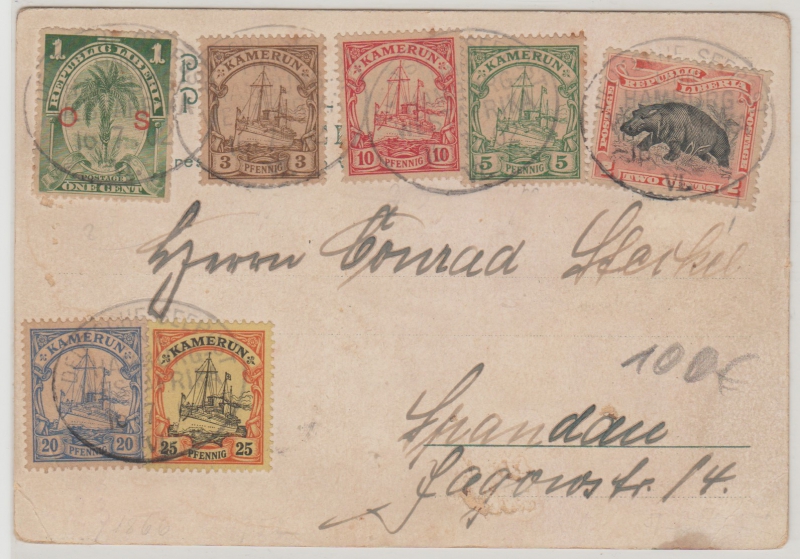 1 REPUBLIC LIBERIA 1
O S
POSTAGE
ONE CENT
KAMERUN
3 PFENNIG 3
KAMERUN
10 PFENNIG 10
KAMERUN
5 PFENNIG 5
REPUBLIC LIBERIA
POSTAGE POSTAGE
TWO CENTS
Herrn Conrad Steckel
KAMERUN
20 PFENNIG 20
KAMERUN
25 PFENNIG 25
100€
Spandau
Jagowstr. 14.